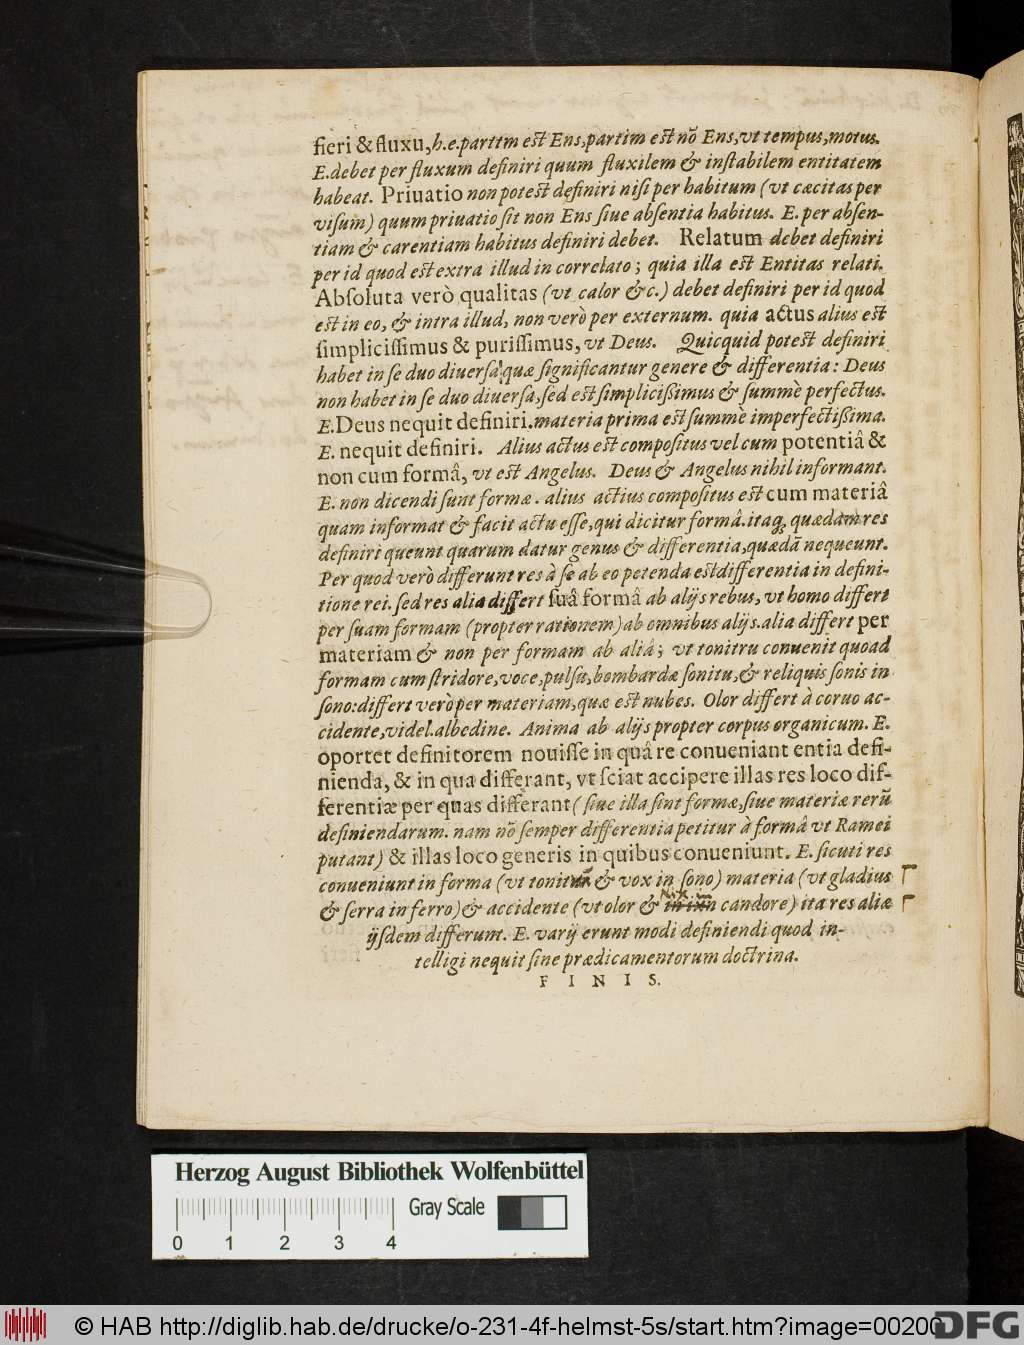 fieri & fluxu, h.e. partim est Ens, partim est nõ Ens, vt tempus, motus.
E. debet per fluxum definiri quum fluxilem & instabilem entitatem
habeat. Priuatio non potest definiri nisi per habitum (vt cæcitas per
visum) quum priuatio sit non Ens siue absentia habitus. E. per absen-
tiam & carentiam habitus definiri debet. Relatum debet definiri
per id quod est extra illud in correlato; quia illa est Entitas relati.
Absoluta verò qualitas (vt calor &c.) debet definiri per id quod
est in eo, & intra illud, non verò per externum. quia actus alius est
simplicissimus & purissimus, vt Deus. Quicquid potest definiri
habet in se duo diuersa quæ significantur genere & differentia: Deus
non habet in se duo diuersa, sed est simplicißimus & summè perfectus.
E. Deus nequit definiri. materia prima est summè imperfectißima.
E. nequit definiri. Alius actus est compositus vel cum potentiâ &
non cum formâ, vt est Angelus. Deus & Angelus nihil informant.
E. non dicendi sunt formæ. alius actius compositus est cum materiâ
quam informat & facit actu esse, qui dicitur formâ. itaq; quædam res
definiri queunt quarum datur genus & differentia, quædã nequeunt.
Per quod verò differunt res à se ab eo petenda est differentia in defini-
tione rei. sed res alia differt suâ formâ ab alijs rebus, vt homo differt
per suam formam (propter rationem) ab omnibus alijs. alia differt per
materiam & non per formam ab aliâ; vt tonitru conuenit quoad
formam cum stridore, voce, pulsu, bombardæ sonitu, & reliquis sonis in
sono: differt verò per materiam, quæ est nubes. Olor differt à coruo ac-
cidente, videl. albedine. Anima ab alijs propter corpus organicum. E.
oportet definitorem nouisse in quâ re conueniant entia defi-
nienda, & in qua differant, vt sciat accipere illas res loco dif-
ferentiæ per quas differant (siue illa sint formæ, siue materiæ rerũ
definiendarum. nam nõ semper differentia petitur à formâ vt Ramei
putant) & illas loco generis in quibus conueniunt. E. sicuti res
conueniunt in forma (vt tonitru & vox in sono) materia (vt gladius
& serra in ferro) & accidente (vt olor & nix in candore) ita res aliæ
ijsdem differunt. E. varij erunt modi definiendi quod in-
telligi nequit sine prædicamentorum doctrina.
FINIS.
Herzog August Bibliothek Wolfenbüttel
Gray Scale
0 1 2 3 4
© HAB http://diglib.hab.de/drucke/o-231-4f-helmst-5s/start.htm?image=00200
DFG